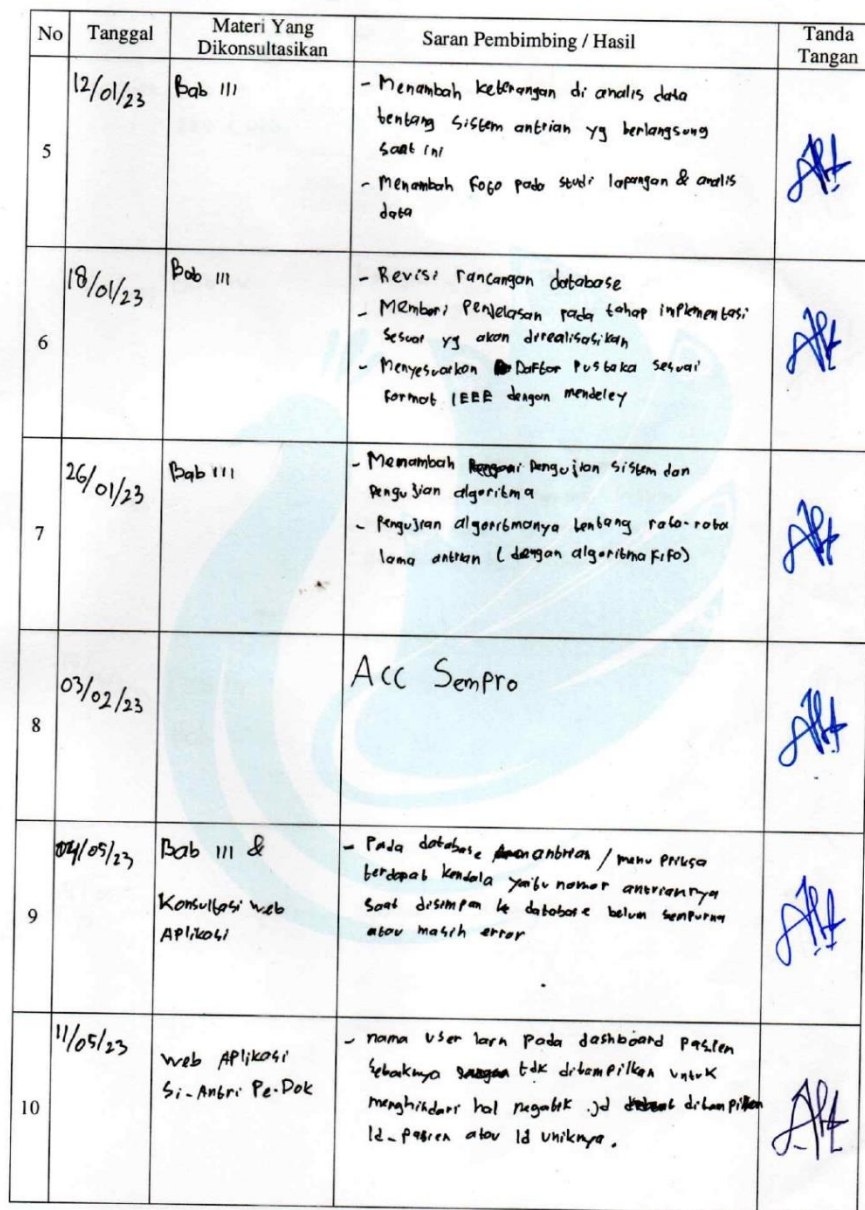 No Tanggal Materi Yang Dikonsultasikan Saran Pembimbing / Hasil Tanda Tangan
5 12/01/23 Bab III - Menambah keterangan di analis data
tentang sistem antrian yg berlangsung
saat ini
- Menambah Foto pada studi lapangan & analis
data
6 18/01/23 Bab III - Revisi rancangan database
- Memberi Penjelasan pada tahap implementasi
sesuai yg akan direalisasikan
- Menyesuaikan Daftar Pustaka sesuai
format IEEE dengan mendeley
7 26/01/23 Bab III - Menambah Pengujian sistem dan
Pengujian algoritma
- Pengujian algoritmanya tentang rata-rata
lama antrian (dengan algoritma FIFO)
8 03/02/23 Acc Sempro
9 04/05/23 Bab III & - Pada database antrian / menu Priksa
terdapat kendala yaitu nomor antriannya
Konsultasi web saat disimpan ke database belum sempurna
Aplikasi atau masih error
10 11/05/23 - nama user lain pada dashboard pasien
web Aplikasi sebaiknya tdk ditampilkan untuk
Si-Antri Pe-Dok menghindari hal negatif .jd ditampilkan
Id-pasien atau Id uniknya.